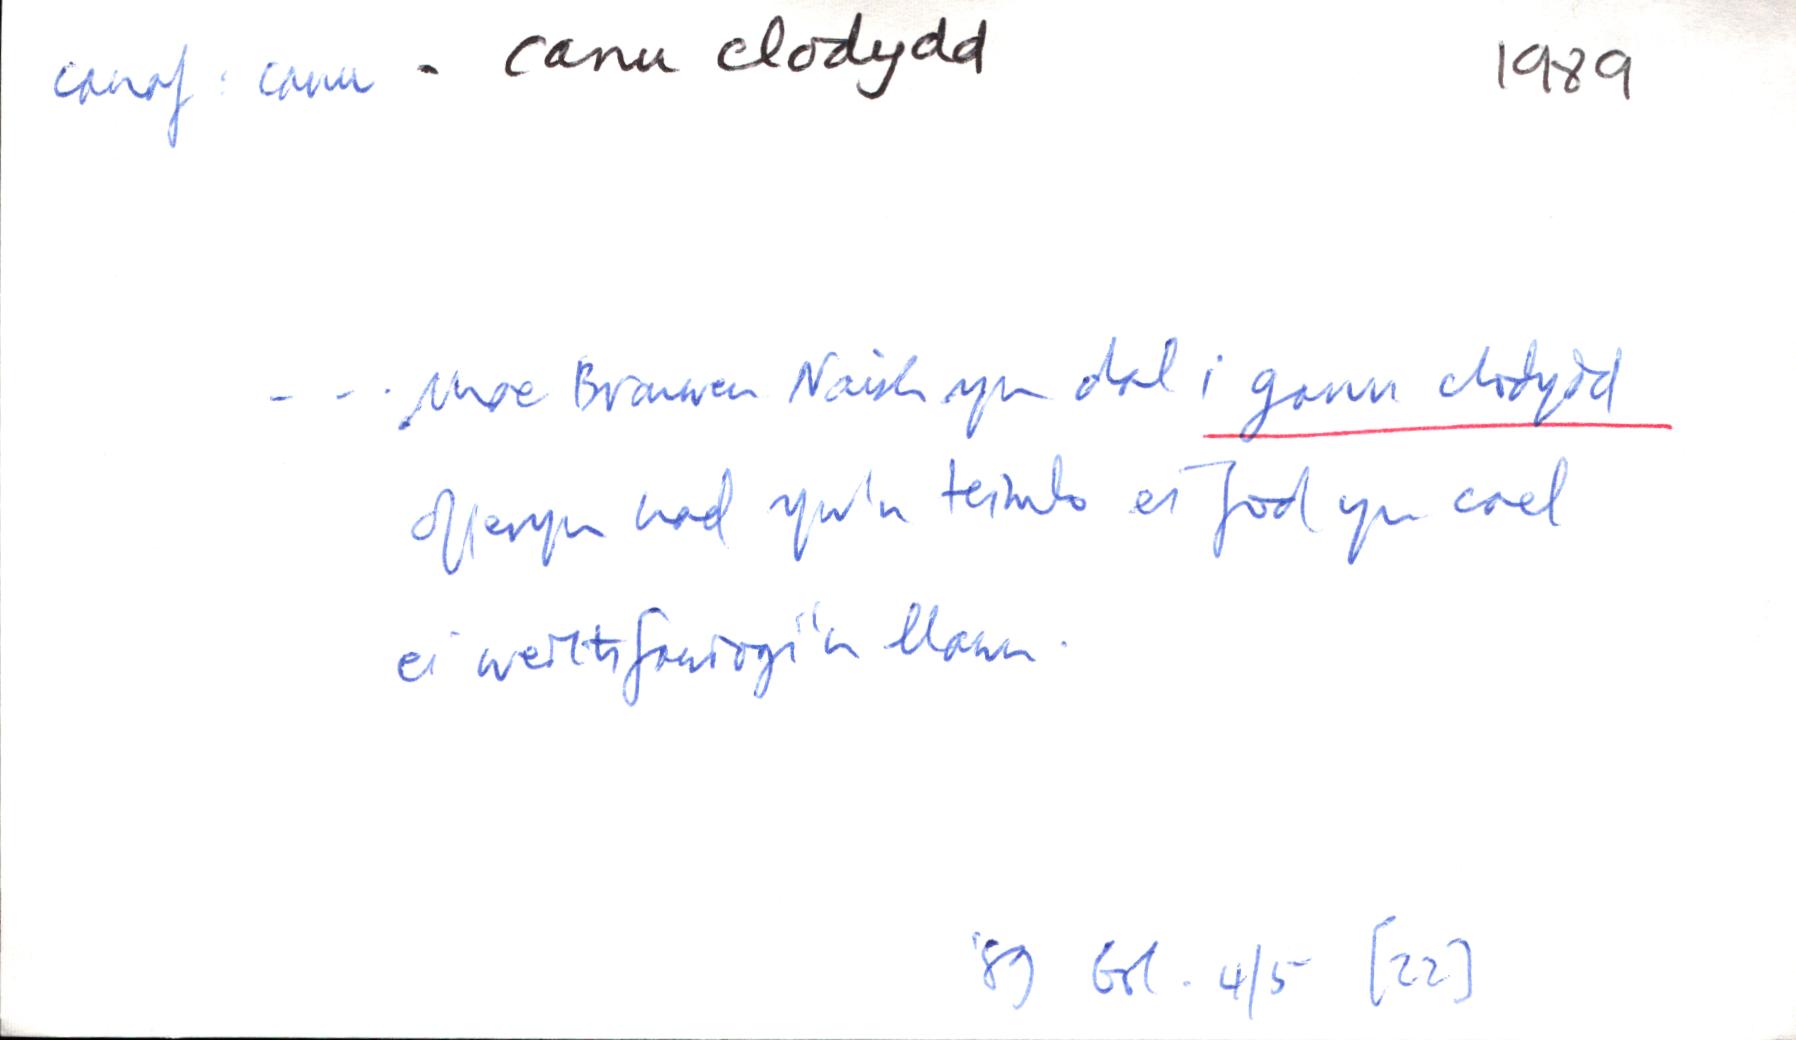 canaf : canu - canu clodydd 1989
- - . Mae Bronwen Naish yn dal i ganu clodydd
offeryn nad yw'n teimlo ei fod yn cael
ei werthfawrogi'n llawn.
'89 Gol. 4/5 [22]